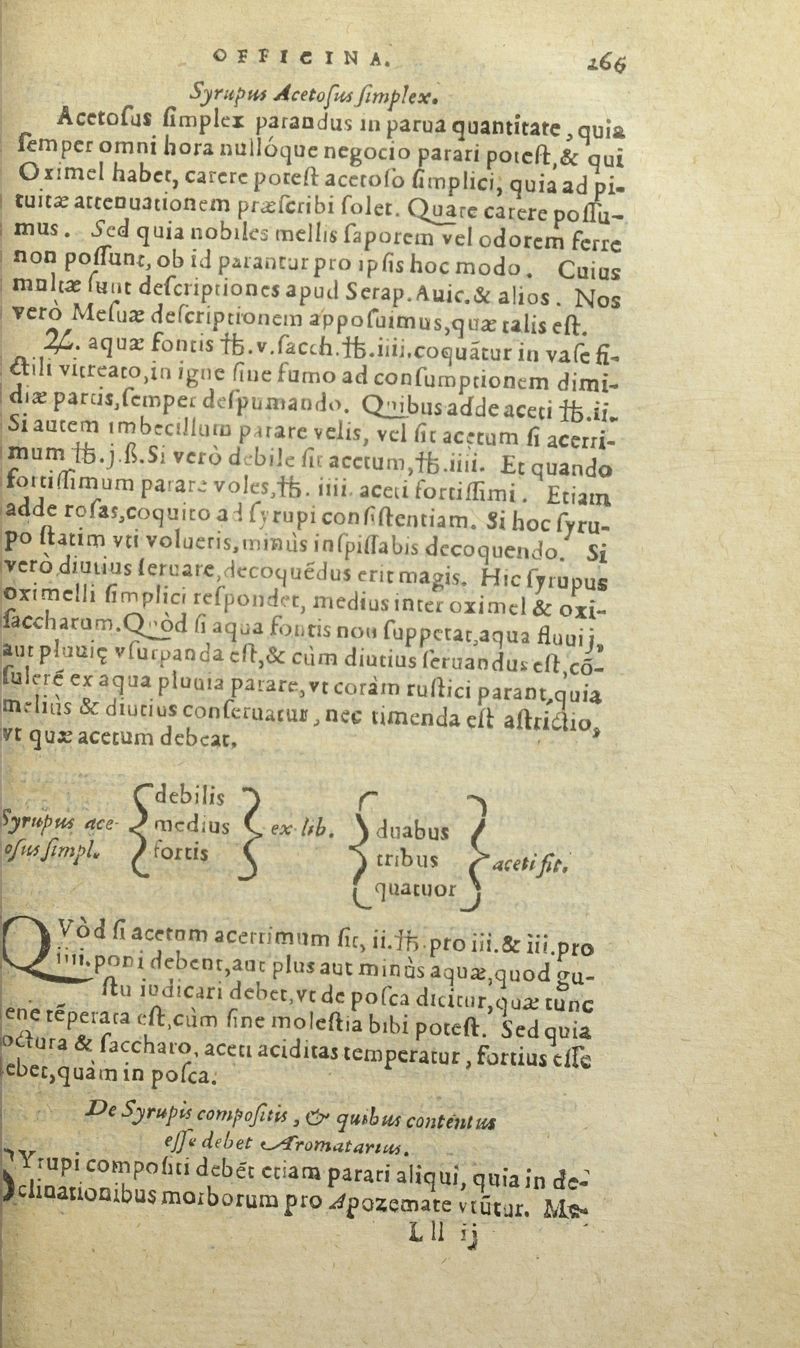 OFFICINA. 266
Syrupus Acetosus simplex.
Acetosus simplex parandus in parua quantitate, quia
semper omni hora nullóque negocio parari potest, & qui
Oximel habet, carere potest acetoso simplici, quia ad pi-
tuitæ attenuationem præscribi solet. Quare carere possu-
mus. Sed quia nobiles mellis saporem vel odorem ferre
non possunt, ob id parantur pro ipsis hoc modo. Cuius
multæ sunt descriptiones apud Serap. Auic. & alios. Nos
verò Mesuæ descriptionem apposuimus, quæ talis est.
℞. aquæ fontis ℔.v. sacch. ℔.iiii. coquātur in vase fi-
ctili vitreato, in igne sine fumo ad consumptionem dimi-
diæ partis, semper despumando. Quibus adde aceti ℔.ii.
Si autem imbecillum parare velis, vel sit acetum si acerri-
mum ℔.j.ß. Si verò debile sit acetum, ℔.iiii. Et quando
fortissimum parare voles, ℔. iiii. aceti fortissimi. Etiam
adde rosas, coquito ad syrupi consistentiam. Si hoc syru-
po statim vti volueris, minùs inspissabis decoquendo. Si
verò diutius seruare, decoquēdus erit magis. Hic syrupus
oximelli simplici respondet, medius inter oximel & oxi-
saccharum. Quòd si aqua fontis non suppetat, aqua fluuij,
aut pluuię vsurpanda est, & cùm diutius seruandus est, cō-
sulerē ex aqua pluuia parare, vt coràm rustici parant, quia
melius & diutius conseruatur, nec timenda est astrictio,
vt quæ acetum debeat,
Syrupus ace- { debilis } ex lib. { duabus } aceti fit.
osus simpl. { medius } { tribus }
{ fortis } { quatuor }
QVòd si acetum acerrimum sit, ii.℔. pro iii. & iii. pro
iiii. poni debent, aut plus aut minùs aquæ, quod gu-
stu iudicari debet, vt de posca dicitur, quæ tunc
ene tēperata est, cùm sine molestia bibi potest. Sed quia
octura & saccharo, aceti aciditas temperatur, fortius esse
ebet, quàm in posca.
De Syrupis compositis, & quibus contentus
esse debet Aromatarius.
SYrupi compositi debēt etiam parari aliqui, quia in de-
clinationibus morborum pro Apozemate vtūtur. Me-
Lll ij